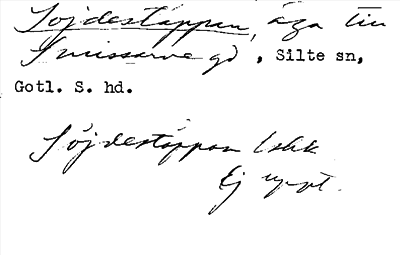 Söjdestäppan, äga till
Smissarve gd, Silte sn,
Gotl. S. hd.
Söjdestäppan Iskk
Ej uppt.